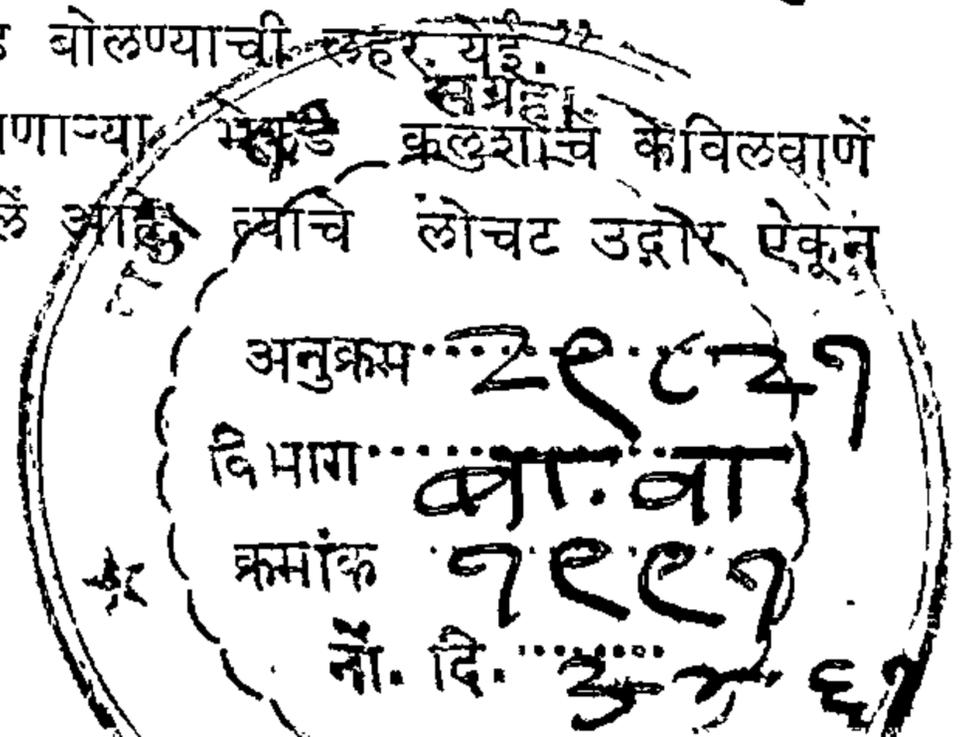 बोलण्याची लहर येई.
संग्रहा
णाऱ्या कलुशाचें केविलवाणें
लें आणि त्यांचे लोचट उद्गार ऐकून
अनुक्रम २९८२१
विभाग बा. वा
क्रमांक १९९१
नों. दि. ६१